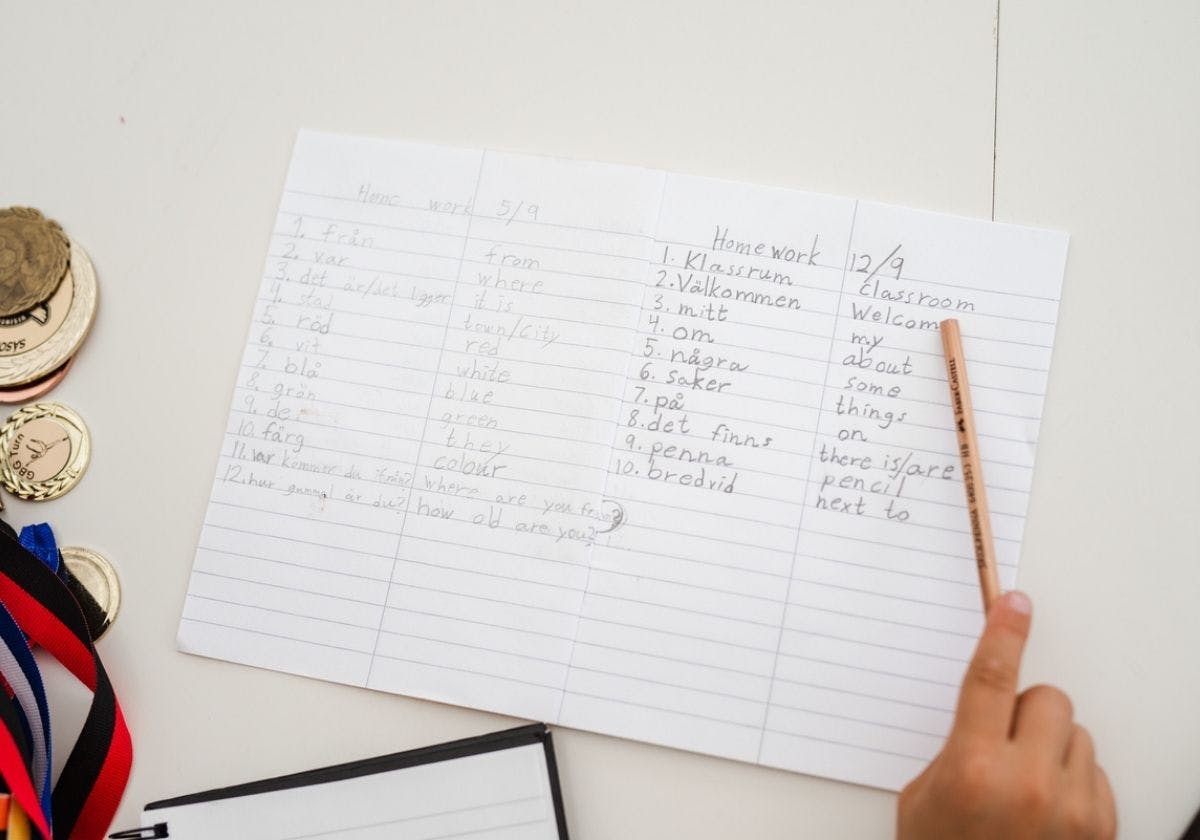 Home work 5/9
1. från from
2. var where
3. det är/det ligger it is
4. stad town/city
5. röd red
6. vit white
7. blå blue
8. grön green
9. de they
10. färg colour
11. var kommer du ifrån? where are you from?
12. hur gammal är du? how old are you?
Home work 12/9
1. Klassrum classroom
2. Välkommen Welcom
3. mitt my
4. om about
5. några some
6. saker things
7. på on
8. det finns there is/are
9. penna pencil
10. bredvid next to
FABER-CASTELL
GBG Turn